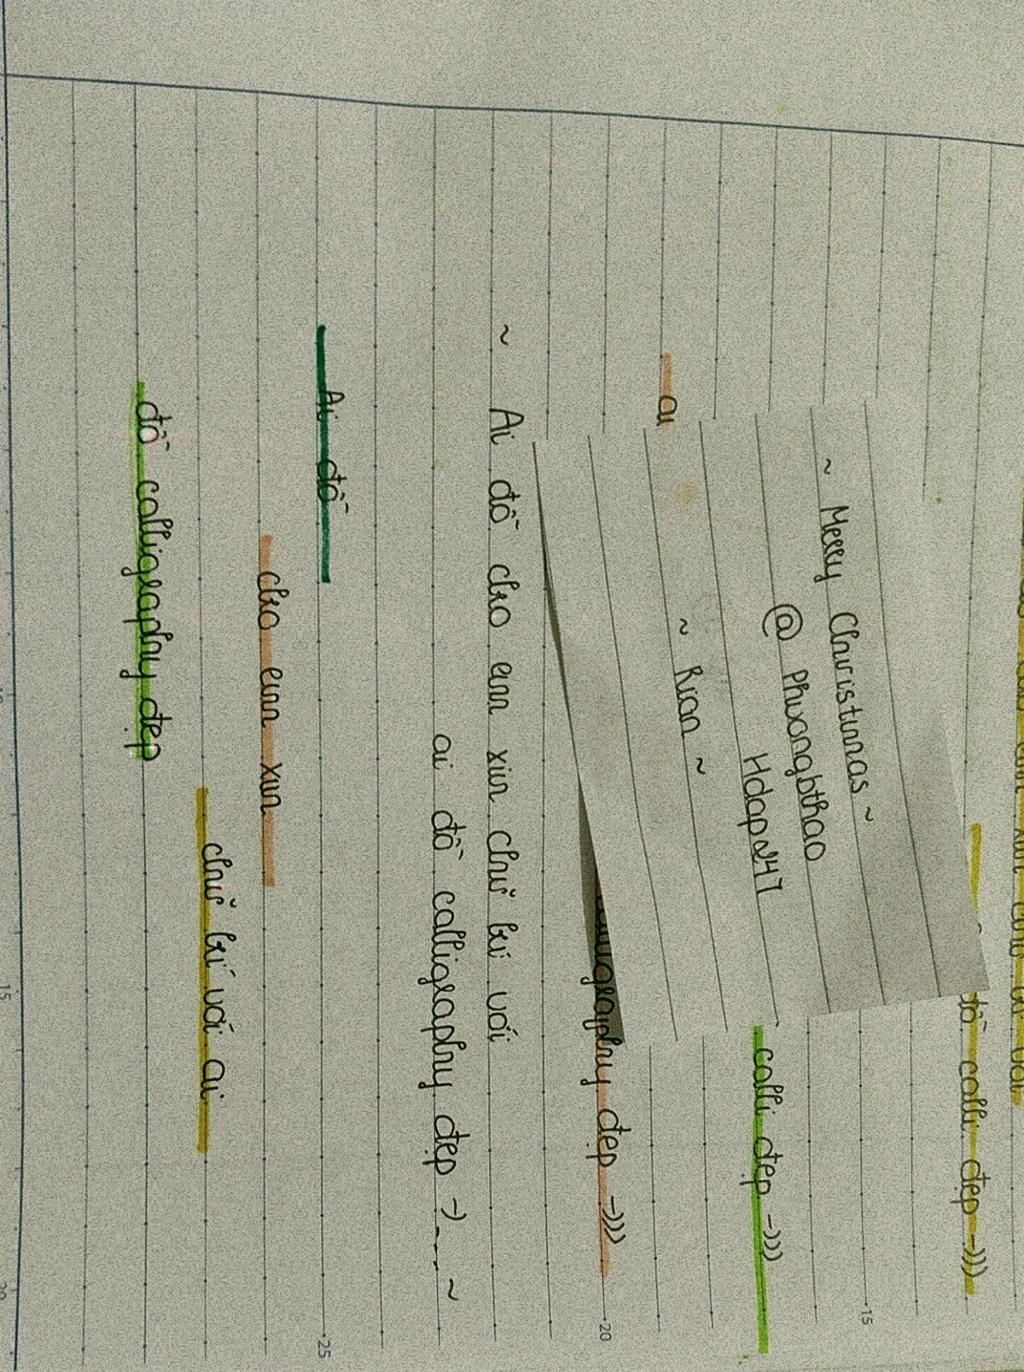 đồ calli đẹp -)))
~ Merry Christmas ~
@ Phuongbthao
Hdap247
calli đẹp -)))
~ Rian ~
ai
calligraphy đẹp -)))
~ Ai đồ cho em xin chữ kí với
ai đồ calligraphy đẹp -)_ _ _ ~
Ai đồ
cho em xin
chữ kí với ai
đồ calligraphy đẹp
15
20
25
15